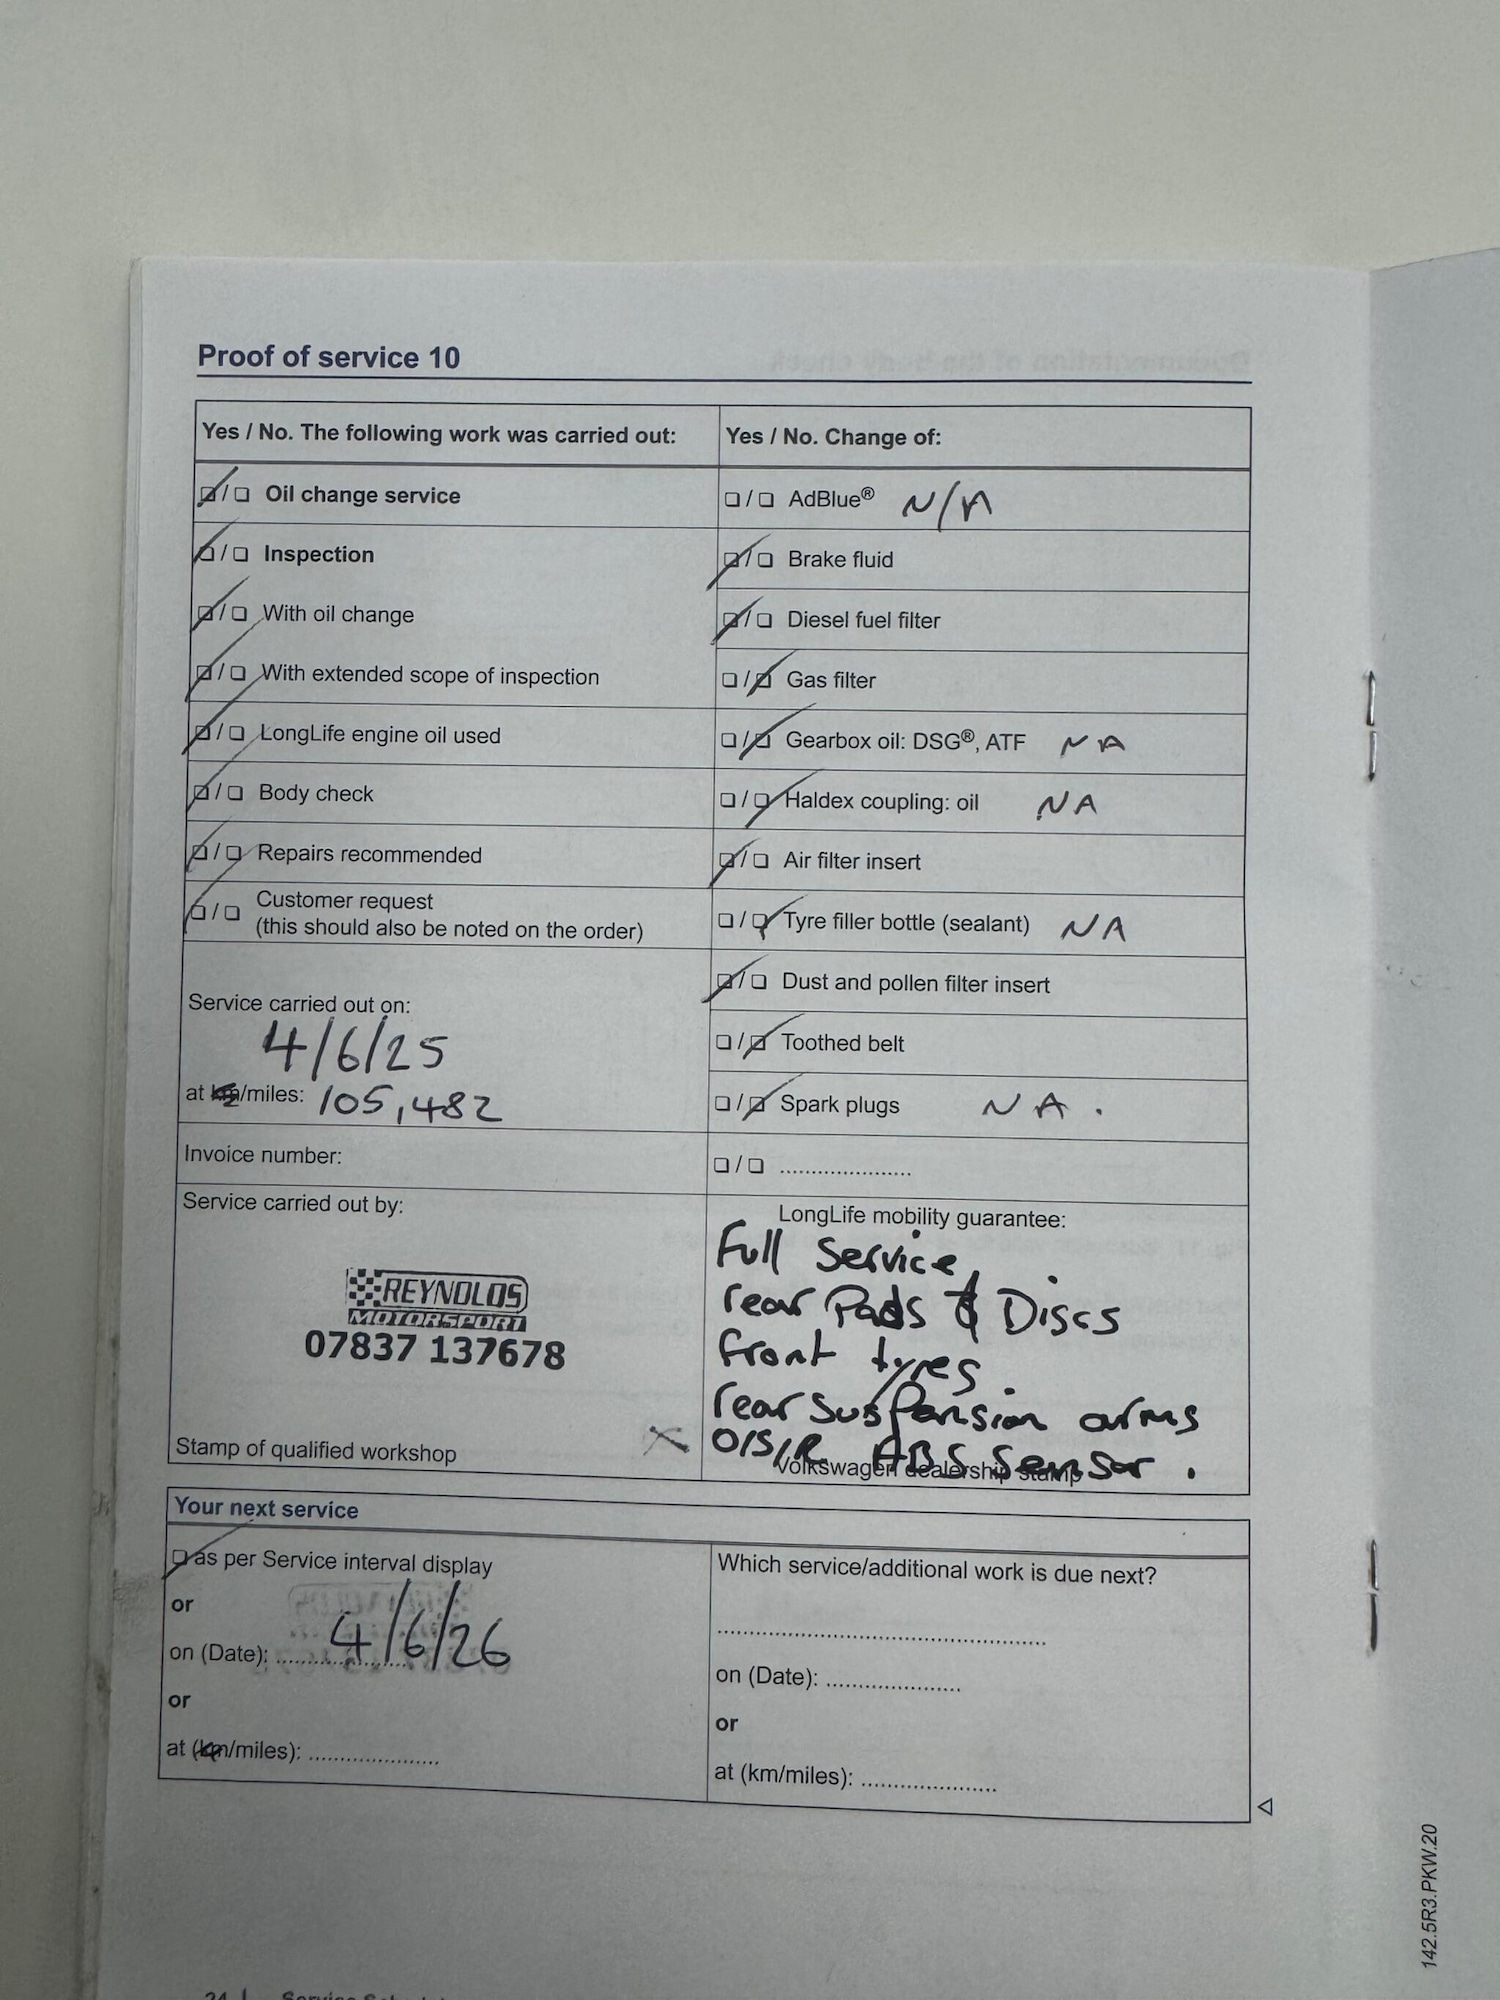 Proof of service 10
Yes / No. The following work was carried out:
Yes / No. Change of:
☑ / ☐ Oil change service
☐ / ☐ AdBlue® N/A
☑ / ☐ Inspection
☑ / ☐ Brake fluid
☑ / ☐ With oil change
☑ / ☐ Diesel fuel filter
☑ / ☐ With extended scope of inspection
☐ / ☑ Gas filter
☑ / ☐ LongLife engine oil used
☐ / ☑ Gearbox oil: DSG®, ATF NA
☑ / ☐ Body check
☐ / ☑ Haldex coupling: oil NA
☑ / ☐ Repairs recommended
☑ / ☐ Air filter insert
☑ / ☐ Customer request
(this should also be noted on the order)
☐ / ☑ Tyre filler bottle (sealant) NA
☑ / ☐ Dust and pollen filter insert
Service carried out on:
4/6/25
☐ / ☑ Toothed belt
at km/miles: 105,482
☐ / ☑ Spark plugs NA.
Invoice number:
☐ / ☐ ......................
Service carried out by:
REYNOLDS
MOTORSPORT
07837 137678
Stamp of qualified workshop
LongLife mobility guarantee:
Full Service,
rear Pads & Discs
front tyres.
rear suspansion arms
O/S/R ABS Sensor.
Volkswagen dealership stamp
Your next service
☑ as per Service interval display
or
on (Date): 4/6/26
or
at (km/miles): ......................
Which service/additional work is due next?
......................................................
on (Date): ......................
or
at (km/miles): ......................
142.5R3.PKW.20